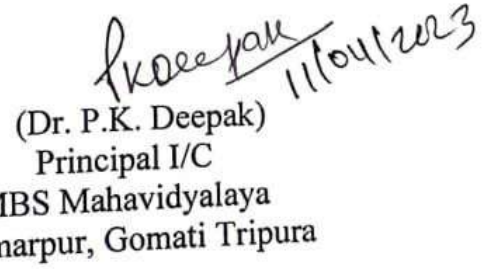 PKDeepak
11/04/2023
(Dr. P.K. Deepak)
Principal I/C
MBS Mahavidyalaya
marpur, Gomati Tripura